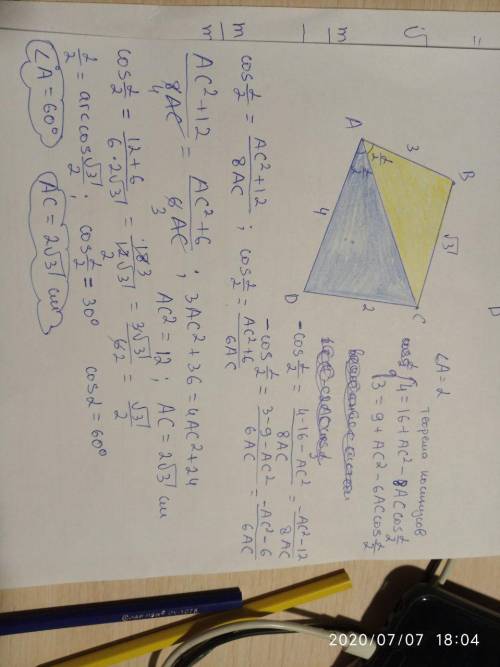 ∠A = α
Теорема косинусов
4 = 16 + AC² − 8AC cos α/2
3 = 9 + AC² − 6AC cos α/2
B
3
√3
A
α/2
α/2
C
4
2
D
−cos α/2 = 4−16−AC² / 8AC = −AC²−12 / 8AC
−cos α/2 = 3−9−AC² / 6AC = −AC²−6 / 6AC
cos α/2 = AC²+12 / 8AC ; cos α/2 = AC²+6 / 6AC
AC²+12 / 8AC 4 = AC²+6 / 6AC 3 ; 3AC²+36 = 4AC²+24
AC² = 12 ; AC = 2√3 см
cos α/2 = 12+6 / 6·2√3 = 18 3 / 12√3 2 = 3√3 / 6 2 = √3 / 2
α/2 = arccos √3/2 ; cos α/2 = 30° cos α = 60°
∠A = 60° AC = 2√3 см
2020/07/07 18:04